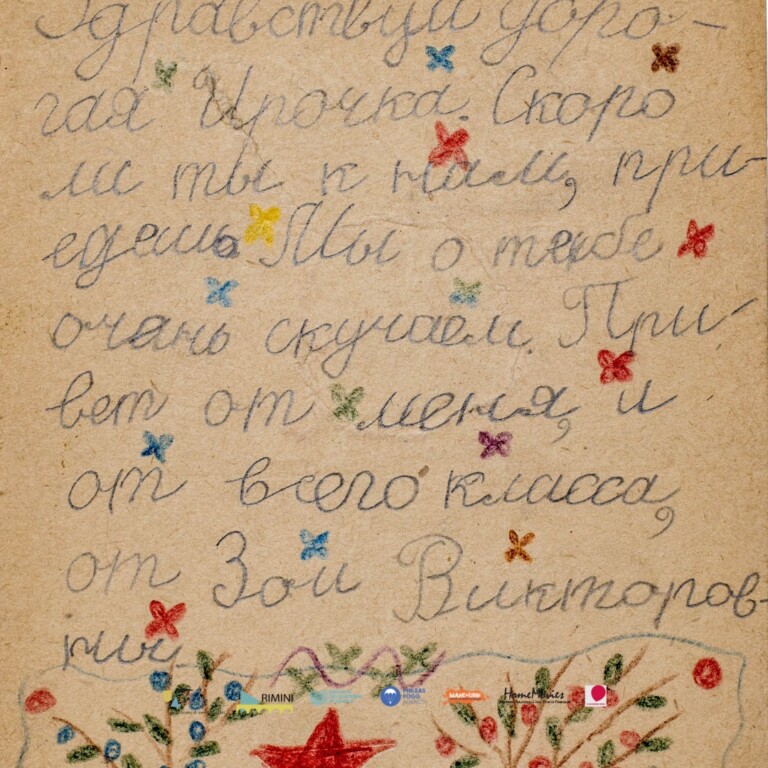 Здравствуй доро-
гая Ирочка. Скоро
ли ты к нам, при-
едешь. Мы о тебе
очань скучаем. При-
вет от меня, и
от всего класса,
от Зои Викторов-
ны
RIMINI
PHILEAS FOGG
HomeMovies